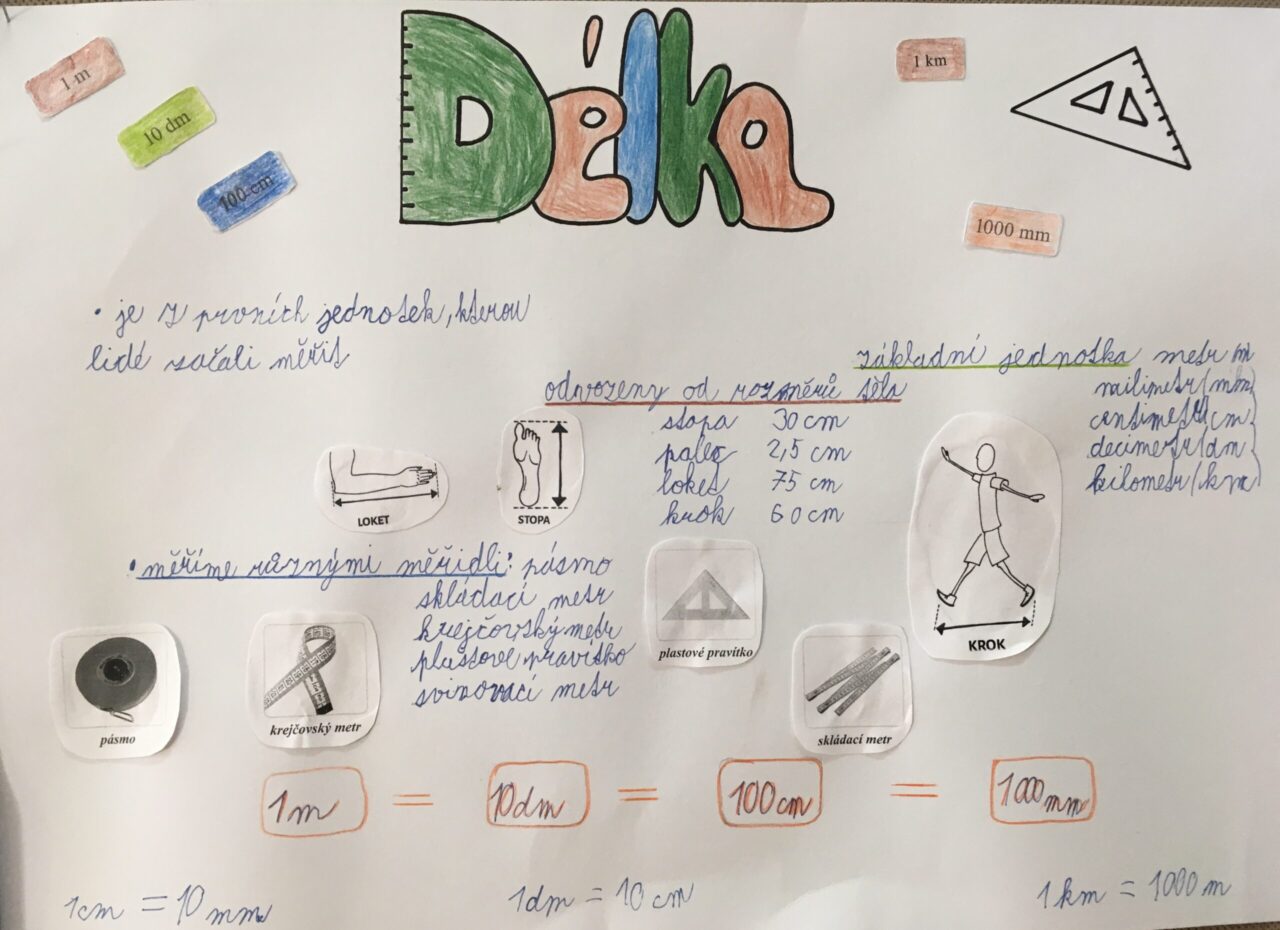 Délka
1 m
10 dm
100 cm
1 km
1000 mm
• je z prvních jednotek, kterou
lidé začali měřit
základní jednotka metr (m)
milimetr (mm)
centimetr (cm)
decimetr (dm)
kilometr (km)
odvozeny od rozměrů těla
stopa 30 cm
palec 2,5 cm
loket 75 cm
krok 60 cm
LOKET
STOPA
KROK
• měříme různými měřidli: pásmo
skládací metr
krejčovský metr
plastové pravítko
svinovací metr
pásmo
krejčovský metr
plastové pravítko
skládací metr
1m = 10dm = 100cm = 1000mm
1cm = 10mm
1dm = 10cm
1km = 1000m